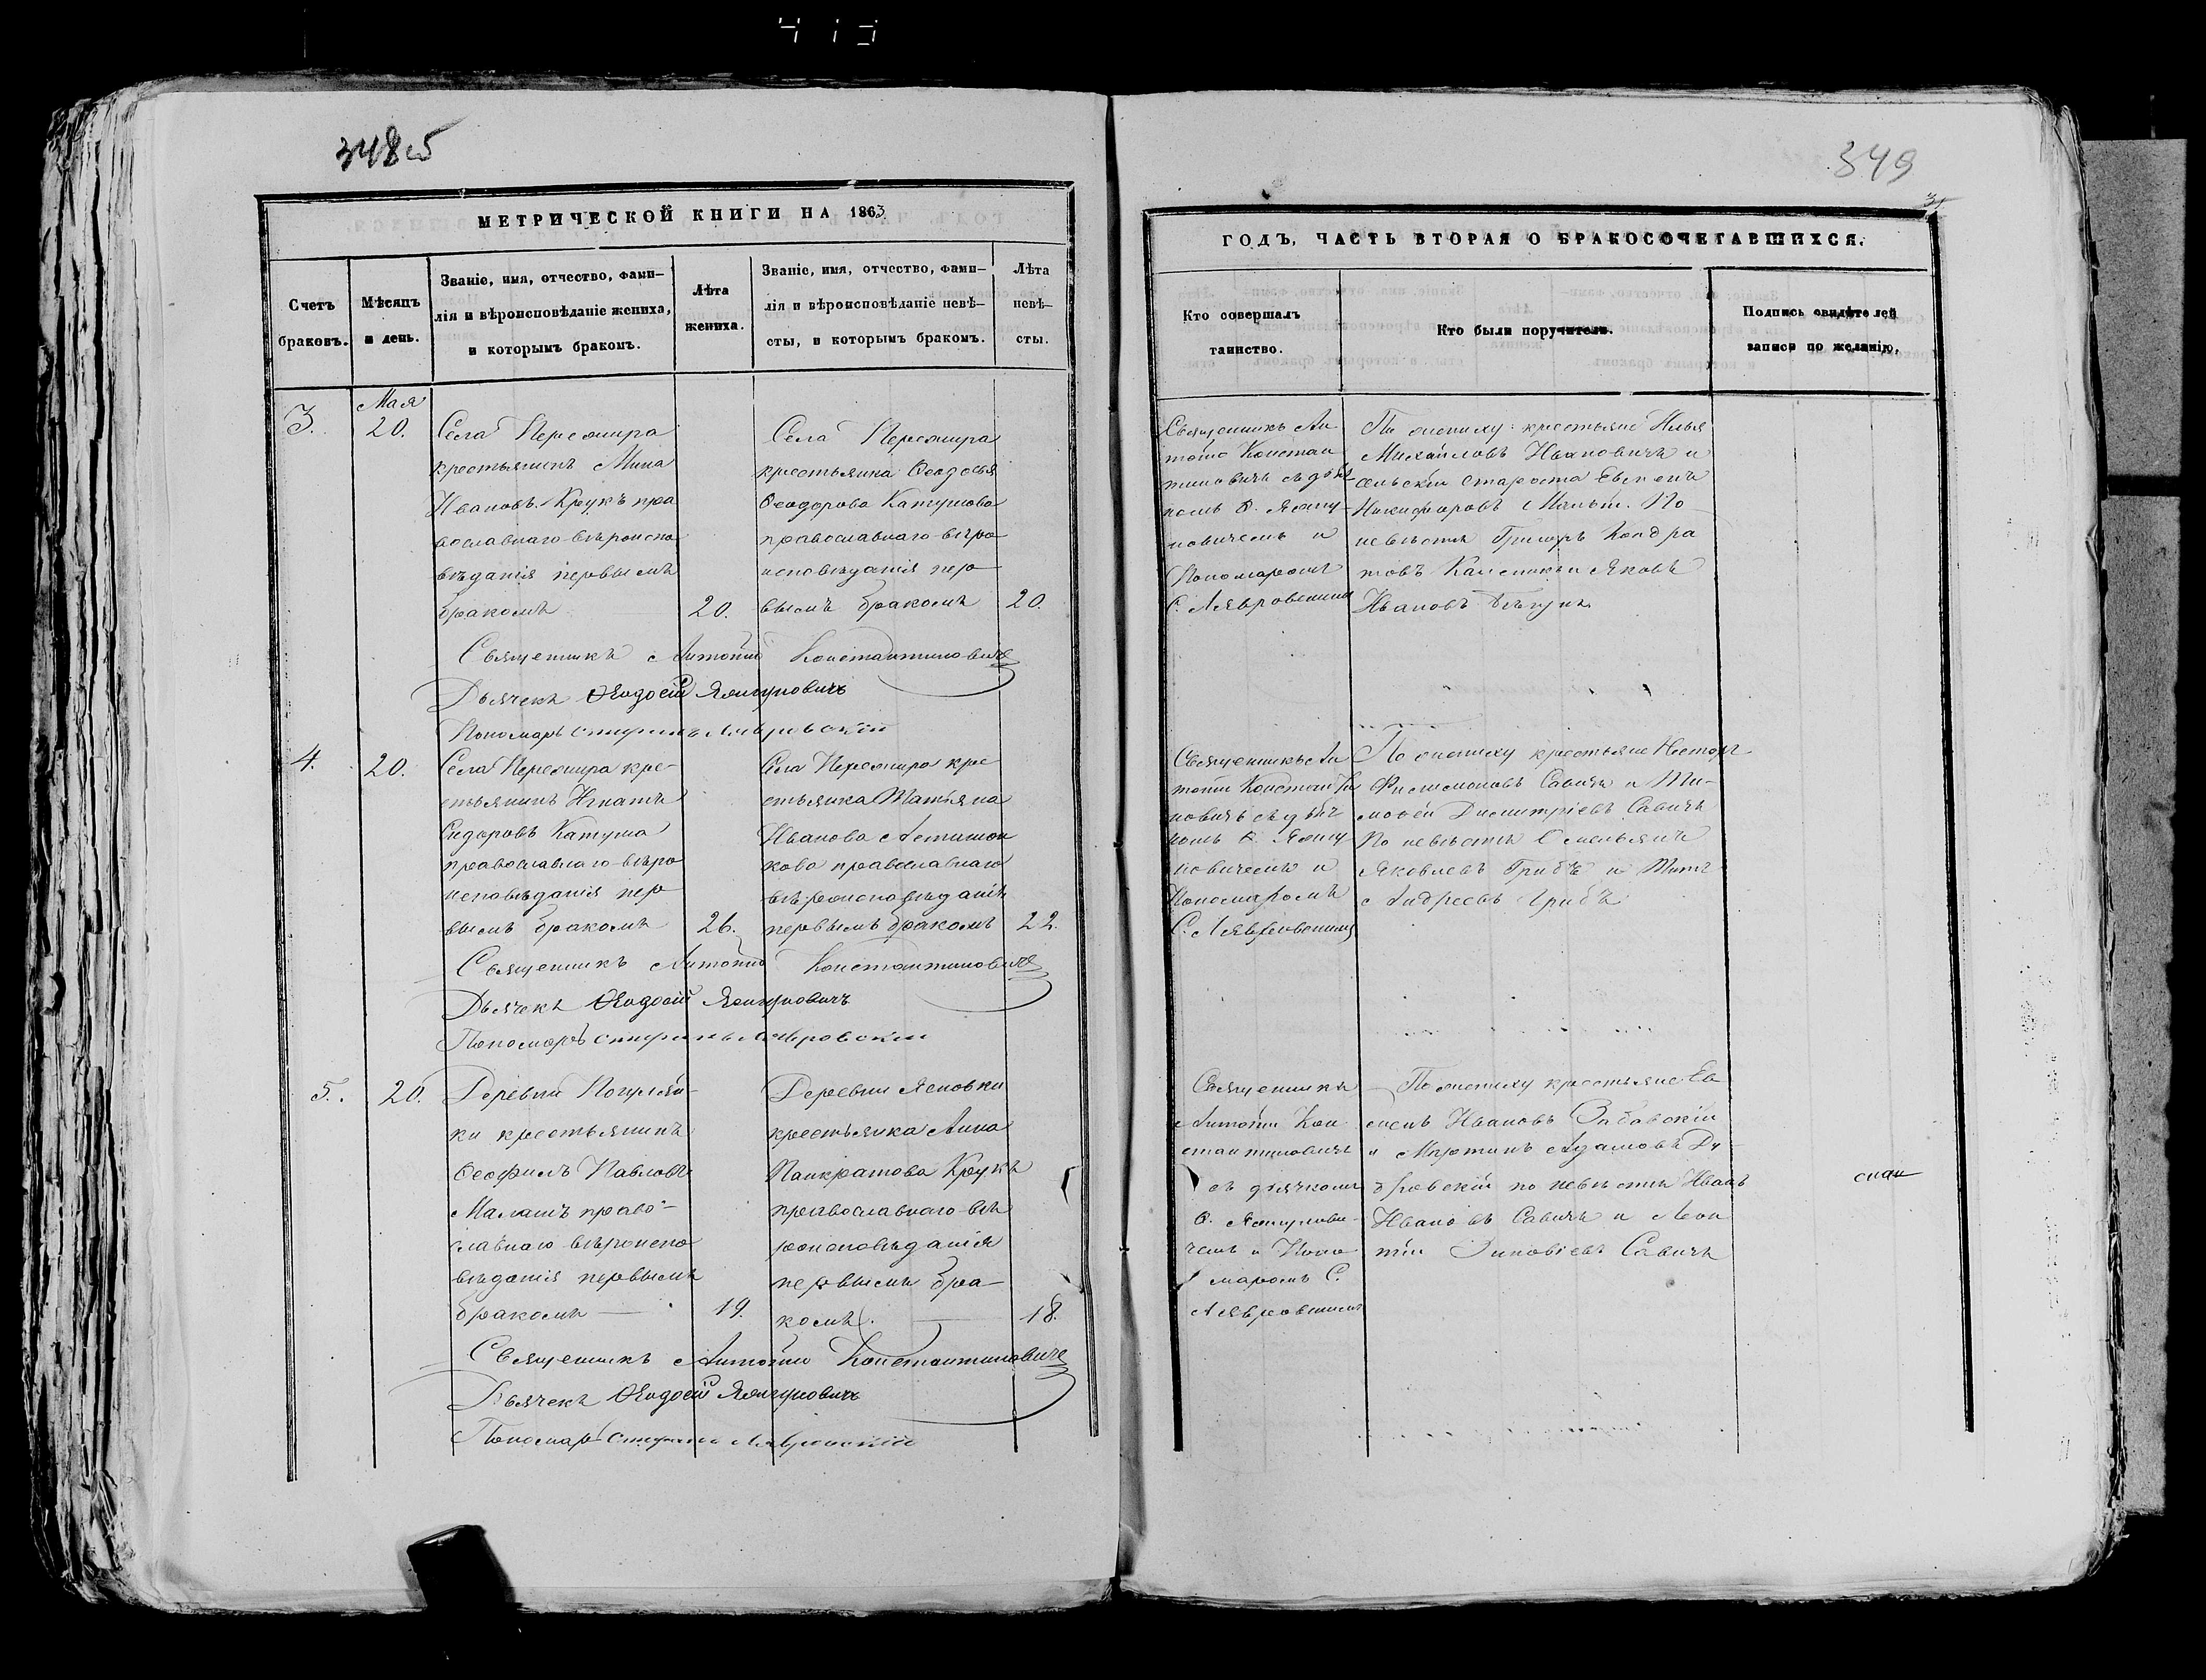 348об
МЕТРИЧЕСКОЙ КНИГИ НА 1863
Счетъ браковъ.
Мѣсяцъ и день.
Званіе, имя, отчество, фами-
лія и вѣроисповѣданіе жениха,
и которымъ бракомъ.
Лѣта жениха.
Званіе, имя, отчество, фами-
лія и вѣроисповѣданіе невѣ-
сты, и которымъ бракомъ.
Лѣта невѣ-
сты.
3.
Мая
20.
Села Пережира
крестьянинъ Мина
Ивановъ Крукъ пра
вославнаго вѣроиспо
вѣданія первымъ
бракомъ
20.
Села Пережира
крестьянка Ѳеодосья
Ѳеодорова Катушова
православнаго вѣро
исповѣданія пер
вымъ бракомъ
20.
Священникъ Антоній Константиновичъ
Дьячекъ Ѳеодосій Яжгуновичъ
Пономарь Стефанъ Лавровскій
4.
20.
Села Пережира кре-
стьянинъ Игнатъ
Сидоровъ Катуша
православнаго вѣро
исповѣданія пер
вымъ бракомъ
26.
Села Пережира кре
стьянка Татіяна
Иванова
кова православнаго
вѣроисповѣданія
первымъ бракомъ
22.
Священникъ Антоній Константиновичъ
Дьячекъ Ѳеодосій Яжгуновичъ
Пономарь Стефанъ Лавровскій
5.
20.
Деревни Погуляй-
ки крестьянинъ
Ѳеофилъ Павловъ
Малашъ право-
славнаго вѣроиспо
вѣданія первымъ
бракомъ
19.
Деревни Ясновки
крестьянка Анна
Панкратова Крукъ
православнаго вѣ
роисповѣданія
первымъ бра-
комъ.
18.
Священникъ Антоній Константиновичъ
Дьячекъ Ѳеодосій Яжгуновичъ
Пономарь Стефанъ Лавровскій
349
ГОДЪ, ЧАСТЬ ВТОРАЯ О БРАКОСОЧЕТАВШИХСЯ.
Кто совершалъ
таинство.
Кто были поручители.
Подпись свидѣтелей
записи по желанію.
Священникъ Ан
тоній Констан
тиновичъ съ дьяч
комъ Ѳ. Яжгу-
новичемъ и
Пономаромъ
С. Лавровскимъ
По жениху: крестьяне Илья
Михайловъ Ивановичъ и
сельскій староста Евгенъ
Никифоровъ По
невѣстѣ Григоръ Кондра
товъ и Яковъ
Ивановъ
Священникъ Ан
тоній Константи
новичъ съ дьяч
комъ Ѳ. Яжгу
новичемъ и
Пономаромъ
С. Лавровскимъ
По жениху крестьяне Несторъ
Филимоновъ Савичъ и Ти-
моѳей Димитріевъ Савичъ
По невѣстѣ Емельянъ
Яковлевъ Грибъ и Титъ
Андреевъ Грибъ
Священникъ
Антоній Кон
стантиновичъ
съ дьячкомъ
Ѳ. Яжгунови-
чемъ и Поно
маромъ С.
Лавровскимъ
По жениху крестьяне Ев
сей Ивановъ
и Мартинъ Адамовъ Ду-
бровскій по невѣстѣ Иванъ
Ивановъ Савичъ и Леон
тій Зиновіевъ Савичъ